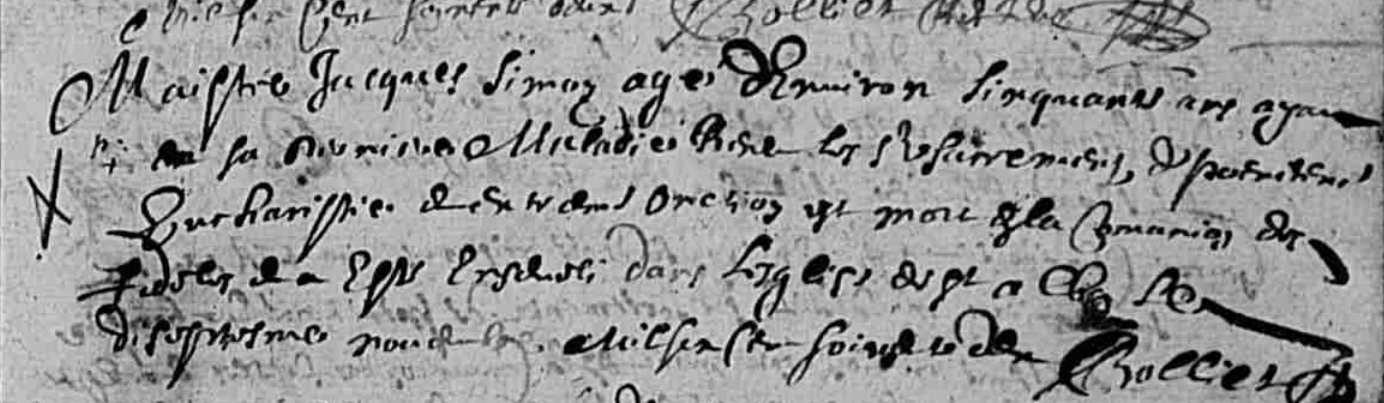 mil six cent soixante deux Rollier
Maistre Jacques Simon agé d'Enuiron sinquante ans ayan
sa derniere Maladie Receu les sacremens, de penitence
Eucharistie et extreme Onction est mort en la Comunion des
fideles et a Esté Enseueli dans Lesglise de st a le
diseptiesme nouembre. Mil six Cen soixante deux Rollier